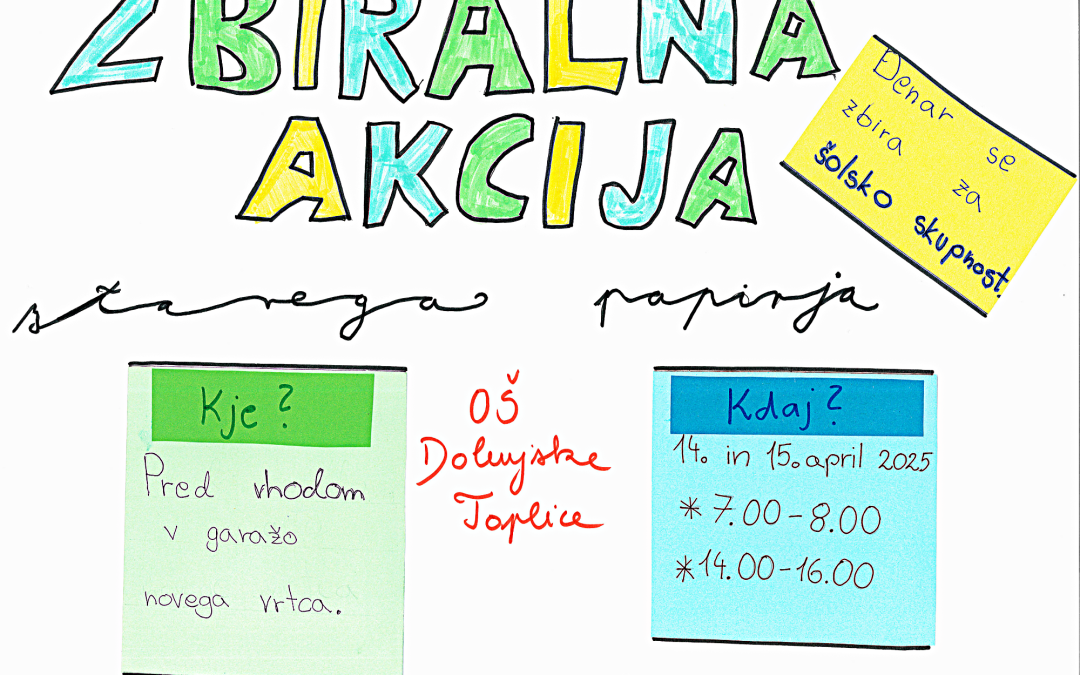 ZBIRALNA
AKCIJA
Denar se
zbira za
šolsko skupnost.
starega papirja
Kje?
Pred vhodom
v garažo
novega vrtca.
OŠ
Dolenjske
Toplice
Kdaj?
14. in 15. april 2025
* 7.00-8.00
* 14.00-16.00